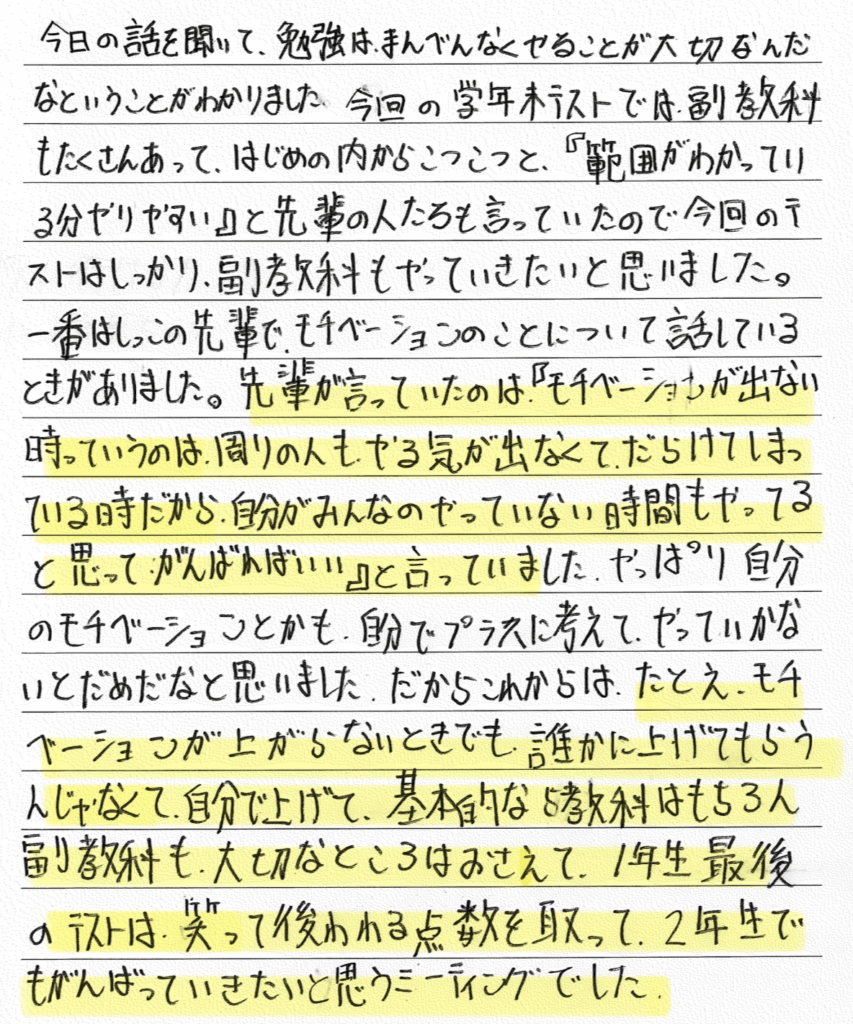 今日の話を聞いて、勉強は、まんべんなくやることが大切なんだ
なということがわかりました。今回の学年末テストでは、副教科
もたくさんあって、はじめの内からこつこつと、『範囲がわかってい
る分やりやすい』と先輩の人たちも言っていたので今回のテ
ストはしっかり、副教科もやっていきたいと思いました。
一番はしっこの先輩で、モチベーションのことについて話している
ときがありました。先輩が言っていたのは、『モチベーションが出ない
時っていうのは、周りの人も、やる気が出なくて、だらけてしまっ
ている時だから、自分がみんなのやっていない時間もやってる
と思って、がんばればいい』と言っていました。やっぱり自分
のモチベーションとかも、自分でプラスに考えて、やっていかな
いとだめだなと思いました。だからこれからは、たとえ、モチ
ベーションが上がらないときでも、誰かに上げてもらう
んじゃなくて、自分で上げて、基本的な5教科はもちろん
副教科も、大切なところはおさえて、1年生最後
のテストは、笑って後われる点数を取って、2年生で
もがんばっていきたいと思うミーティングでした。